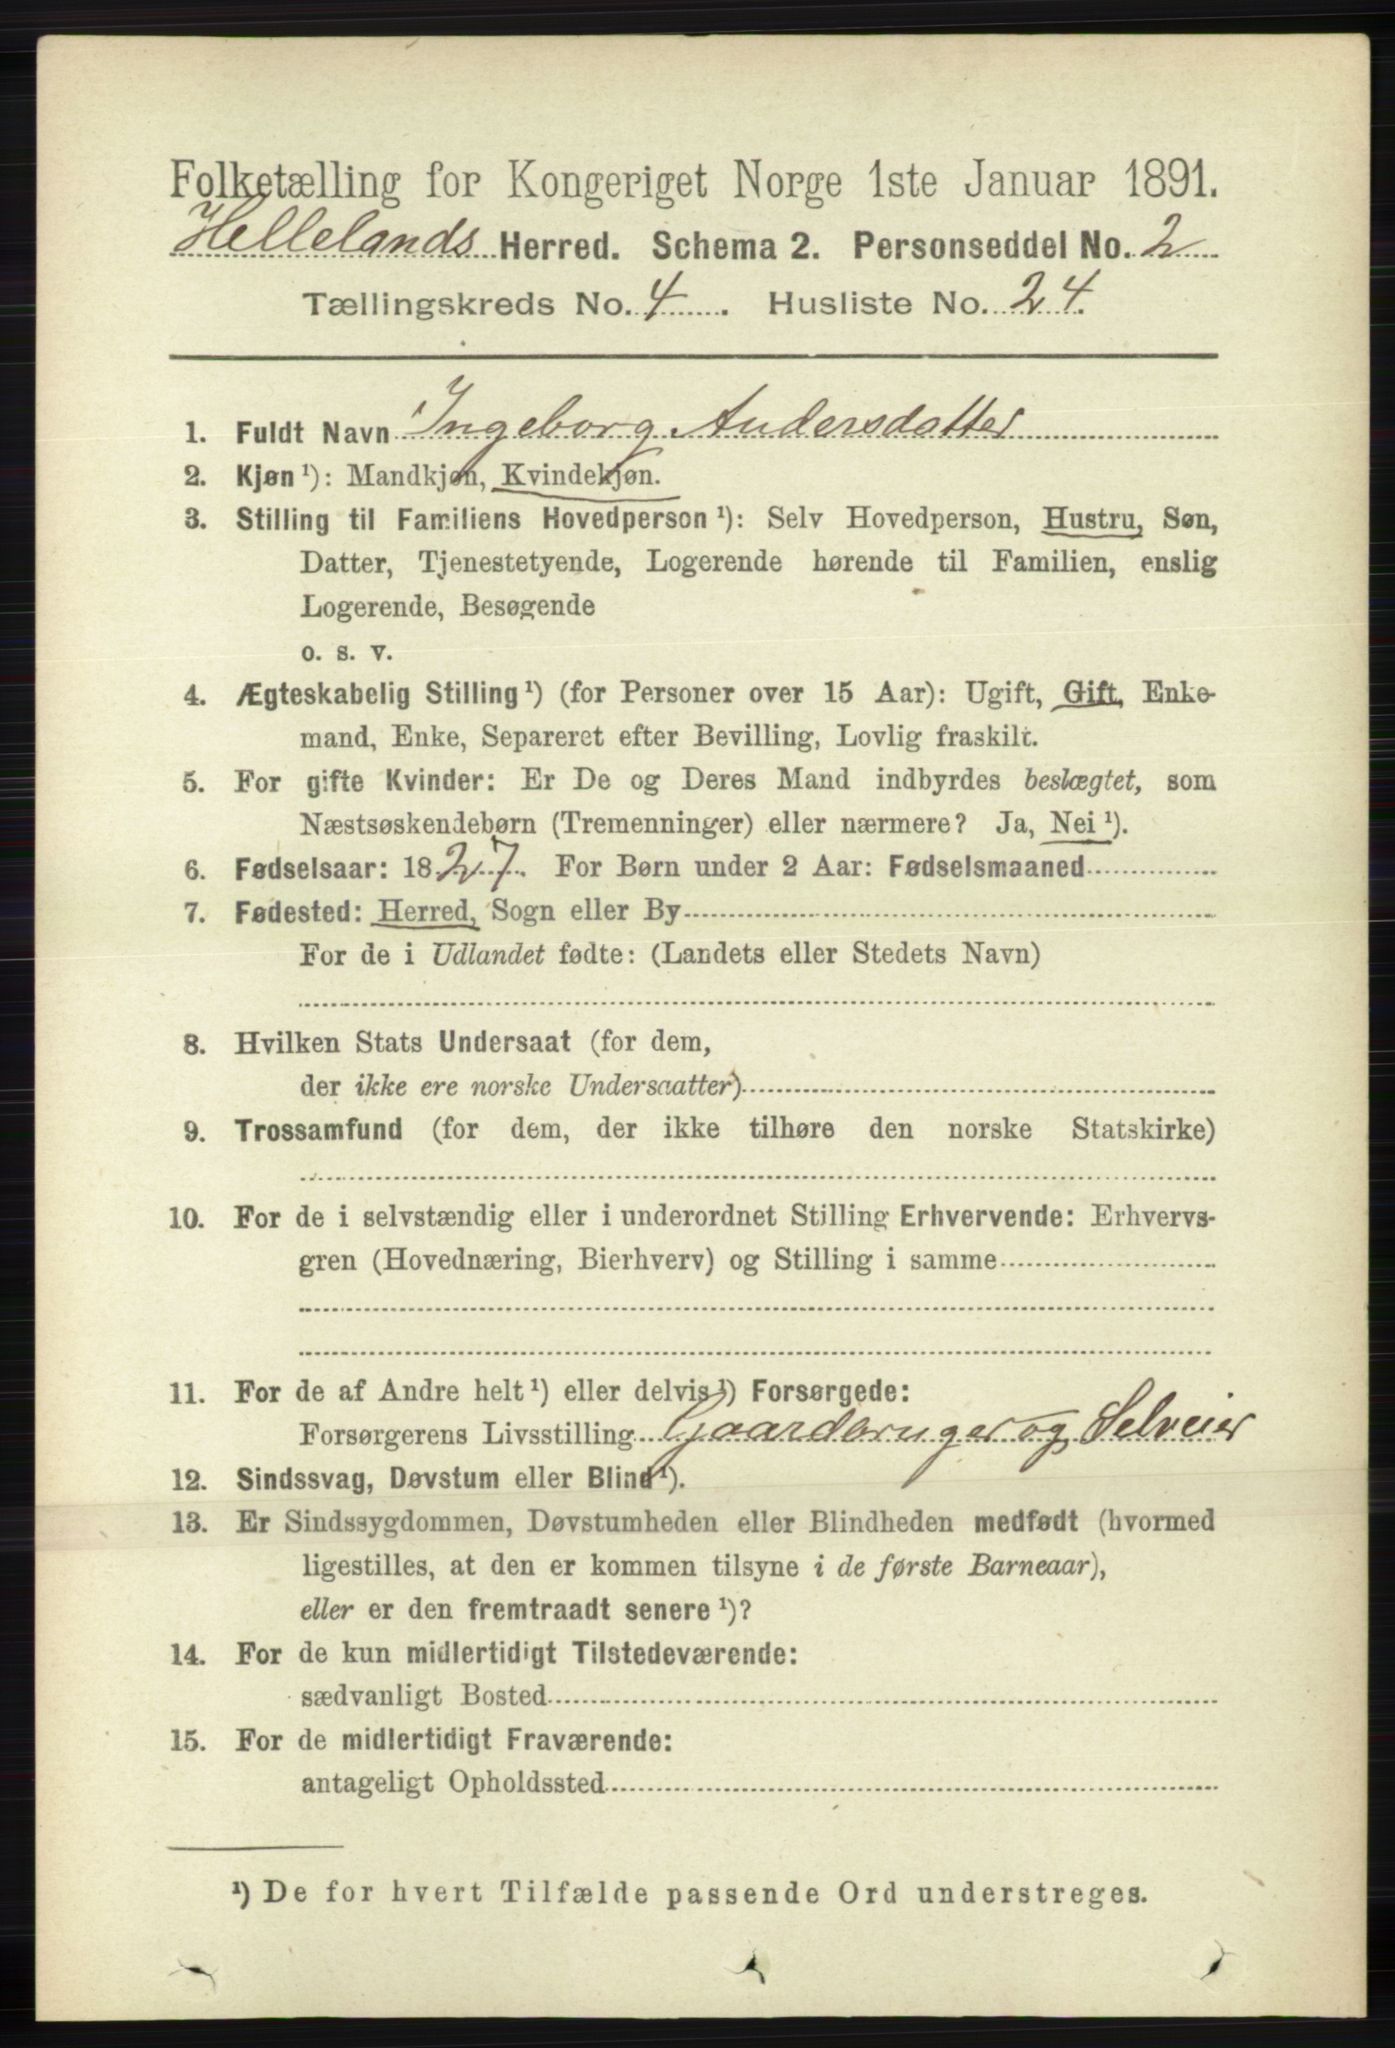 Folketælling for Kongeriget Norge 1ste Januar 1891.
Hellelands Herred. Schema 2. Personseddel No. 2
Tællingskreds No. 4. Husliste No. 24.
1. Fuldt Navn Ingeborg Andersdatter
2. Kjøn ¹): Mandkjøn, Kvindekjøn.
3. Stilling til Familiens Hovedperson ¹): Selv Hovedperson, Hustru, Søn,
Datter, Tjenestetyende, Logerende hørende til Familien, enslig
Logerende, Besøgende
o. s. v.
4. Ægteskabelig Stilling ¹) (for Personer over 15 Aar): Ugift, Gift, Enke-
mand, Enke, Separeret efter Bevilling, Lovlig fraskilt.
5. For gifte Kvinder: Er De og Deres Mand indbyrdes beslægtet, som
Næstsøskendebørn (Tremenninger) eller nærmere? Ja, Nei ¹).
6. Fødselsaar: 1827. For Børn under 2 Aar: Fødselsmaaned
7. Fødested: Herred, Sogn eller By
For de i Udlandet fødte: (Landets eller Stedets Navn)
8. Hvilken Stats Undersaat (for dem,
der ikke ere norske Undersaatter)
9. Trossamfund (for dem, der ikke tilhøre den norske Statskirke)
10. For de i selvstændig eller i underordnet Stilling Erhvervende: Erhvervs-
gren (Hovednæring, Bierhverv) og Stilling i samme
11. For de af Andre helt ¹) eller delvis ¹) Forsørgede:
Forsørgerens Livsstilling Gaardbruger og Selveier
12. Sindssvag, Døvstum eller Blind ¹).
13. Er Sindssygdommen, Døvstumheden eller Blindheden medfødt (hvormed
ligestilles, at den er kommen tilsyne i de første Barneaar),
eller er den fremtraadt senere ¹)?
14. For de kun midlertidigt Tilstedeværende:
sædvanligt Bosted
15. For de midlertidigt Fraværende:
antageligt Opholdssted
¹) De for hvert Tilfælde passende Ord understreges.